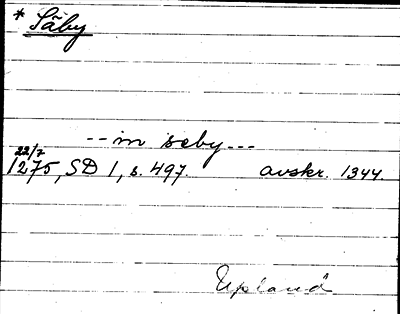 * Säby
-- in seby ---
22/7
1275, SD 1, s. 497. avskr. 1344.
Upland